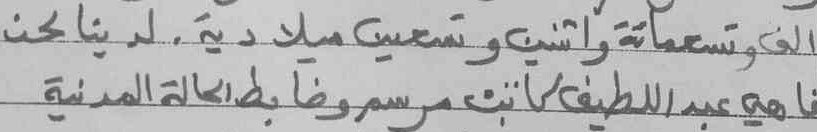 الف وتسعمائة واثنين وتسعين ميلادية. لدينا نحن
فاهي عبد اللطيف كاتب مرسم وضابط الحالة المدنية